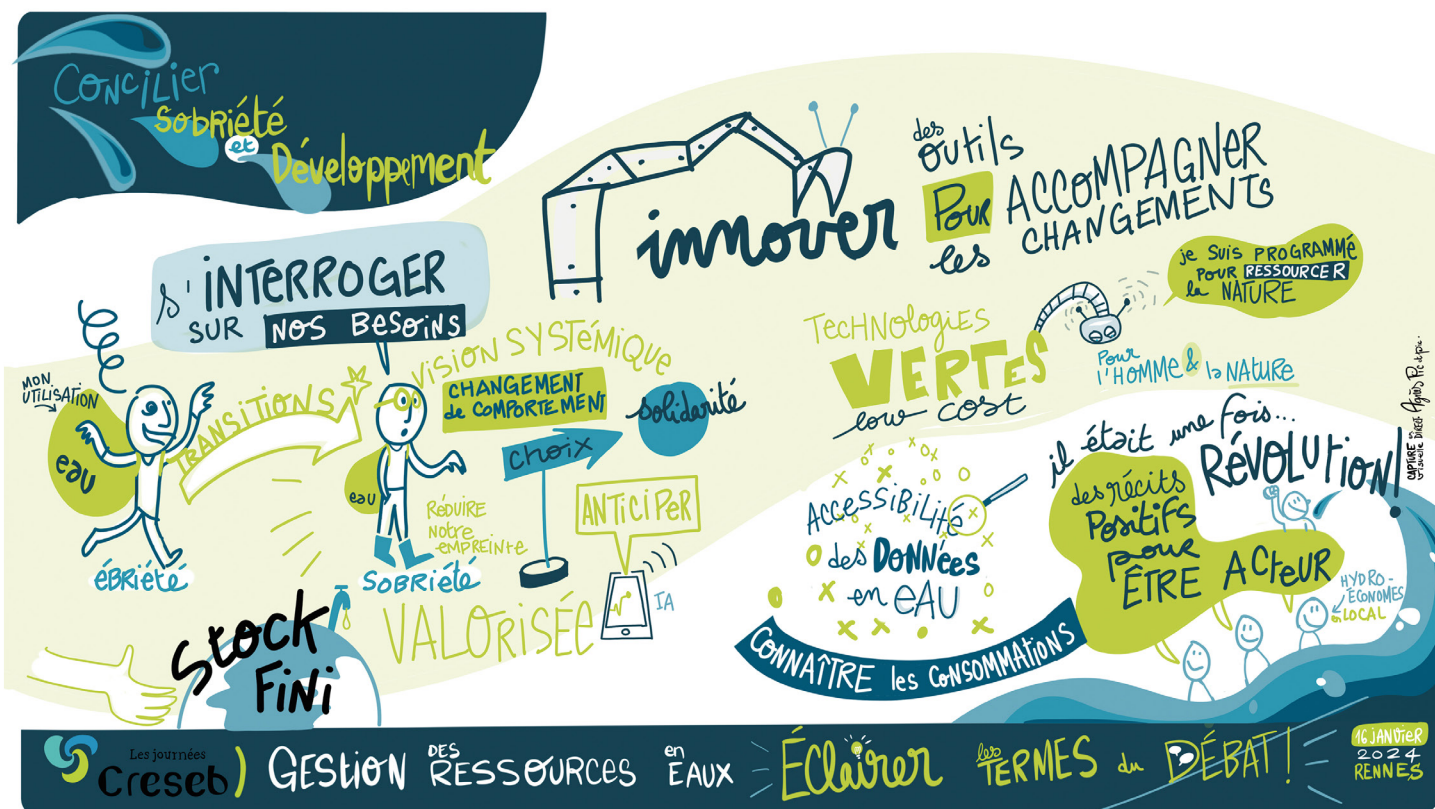 CONCILIER
Sobriété
et
Développement
s'INTERROGER
SUR NOS BESOINS
MON
UTILISATION
eau
ébriété
TRANSITIONS
eau
SOBRIÉTÉ
VISION SYSTÉMIQUE
CHANGEMENT
de COMPORTEMENT
choix
solidarité
RÉDUIRE
Notre
EMPREINTE
ANTICIPER
IA
VALORISÉE
Stock
FiNi
innover
des
outils
Pour
les
ACCOMPAGNER
CHANGEMENTS
je SUIS PROGRAMMÉ
POUR RESSOURCER
la NATURE
TECHNOLOGIES
VERTES
low cost
Pour
l'HOMME & la NATURE
ACCESSIBILITÉ
des DONNÉES
en EAU
CONNAÎTRE les CONSOMMATIONS
il était une fois...
RÉVOLUTION!
des récits
Positifs
pour
ÊTRE ACTEUR
HYDRO-
ÉCONOMES
en LOCAL
CAPTURE
visuelle DIRECT
Les journées
Creseb)
GESTION DES RESSOURCES en EAUX
Éclairer les TERMES du DÉBAT!
16 JANVIER
2024
RENNES